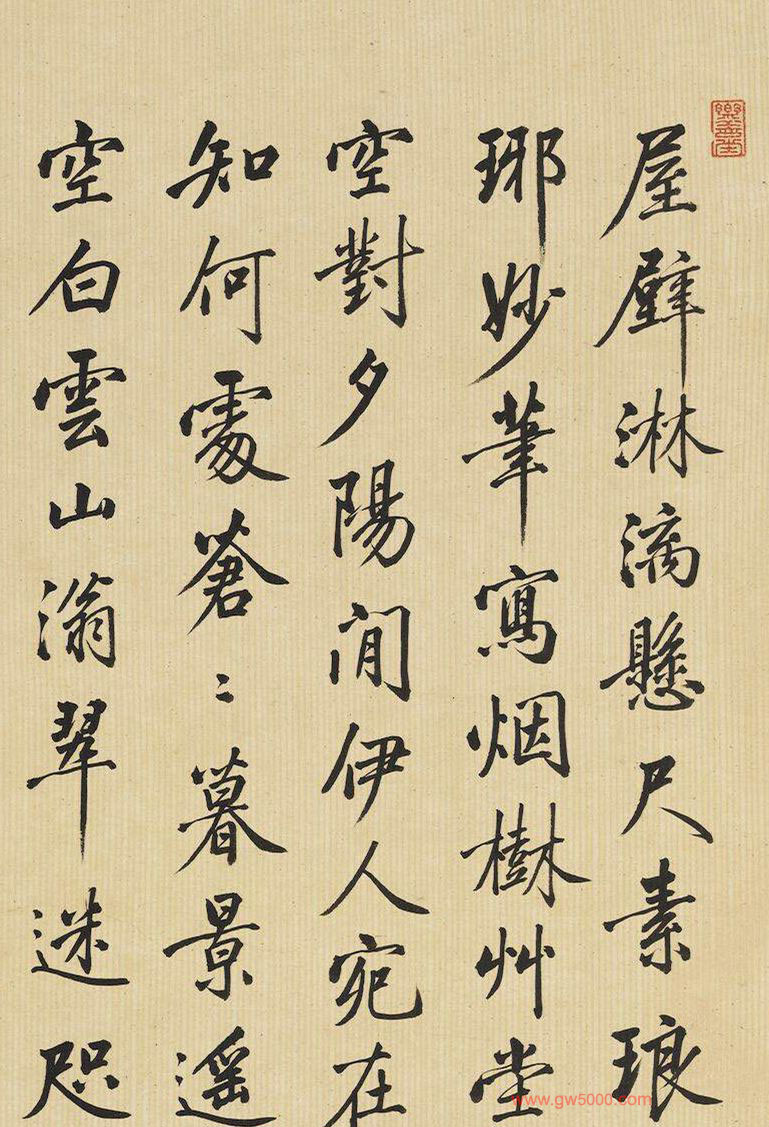 屋壁淋漓懸尺素琅
琊妙筆寫烟樹艸堂
空對夕陽閒伊人宛在
知何處蒼〻暮景遥
空白雲山滃翠迷咫
樂善堂
www.gw5000.com